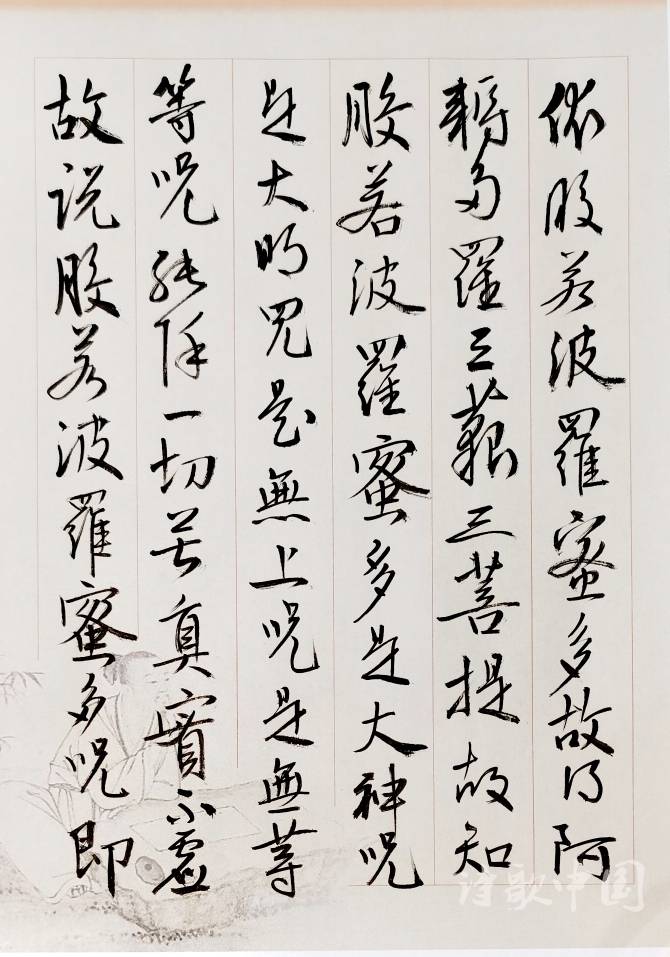 依般若波羅蜜多故得阿
耨多羅三藐三菩提故知
般若波羅蜜多是大神咒
是大明咒是無上咒是無等
等咒能除一切苦真實不虛
故说般若波羅蜜多咒即
诗歌中国